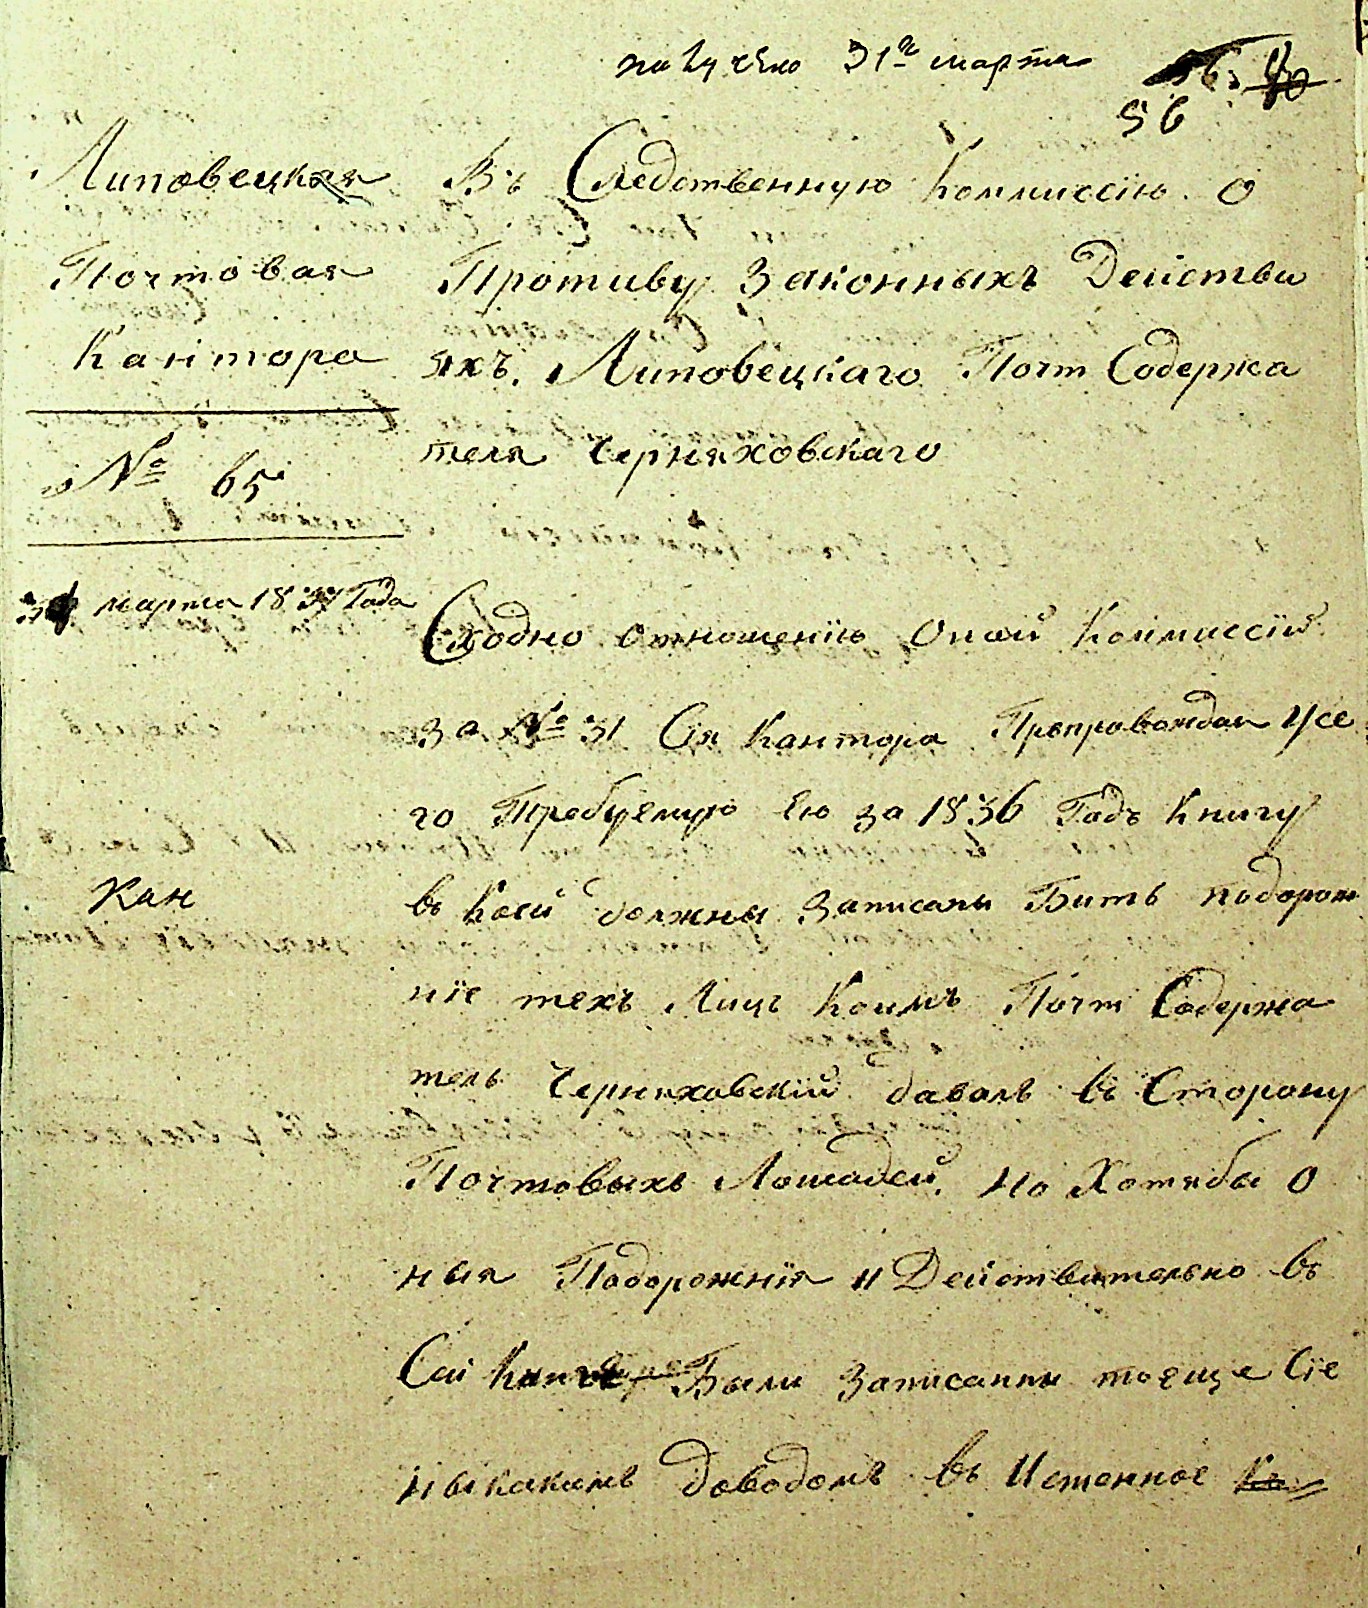 получено 31го марта
56
Липовецкая
Почтовая
Кантора
№ 65
марта 1837 Года
Въ Следственную Коммиссію О
Противу Законныхъ Действи
яхъ Липовецкаго Почт Содержа
теля Черняховскаго
Сходно отношенію Оной Коммиссіи
за № 31 Сія Кантора Препровождая Усе
го Требуемую Ею за 1836 Годъ Книгу
Кан
въ Коей должны Записаны Бить подорож
ніе техъ Лицъ Коимъ Почт Содержа
тель Черняховскій даваль въ Сторону
Почтовыхъ Лошадей. Но Хотябы О
ныя Подорожнія и Действительно въ
Сей Книге Были Записанны то еще Сіе
Ныкакимъ доводомъ въ Истенное